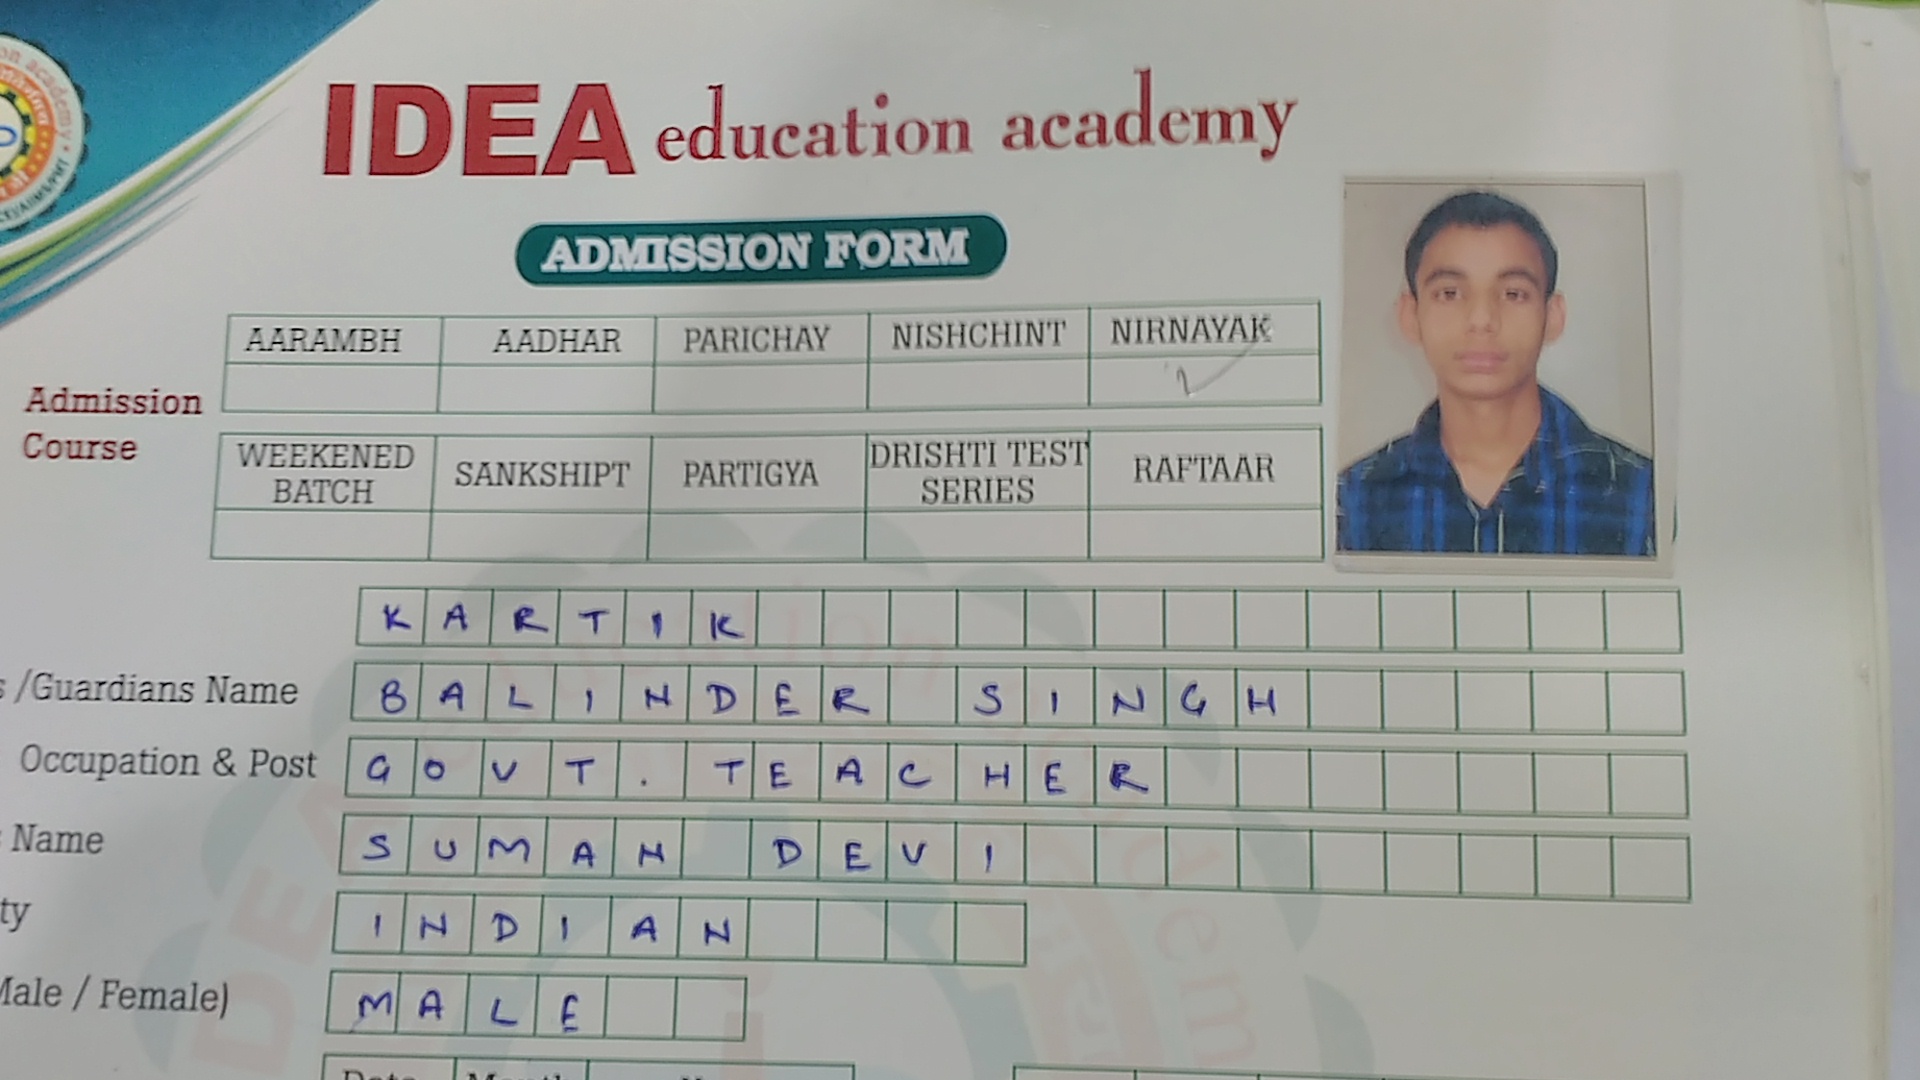 IDEA education academy
ADMISSION FORM
AARAMBH AADHAR PARICHAY NISHCHINT NIRNAYAK
Admission
Course
WEEKENED BATCH SANKSHIPT PARTIGYA DRISHTI TEST SERIES RAFTAAR
KARTIK
/Guardians Name BALINDER SINGH
Occupation & Post GOVT. TEACHER
Name SUMAN DEVI
ty INDIAN
Male / Female) MALE